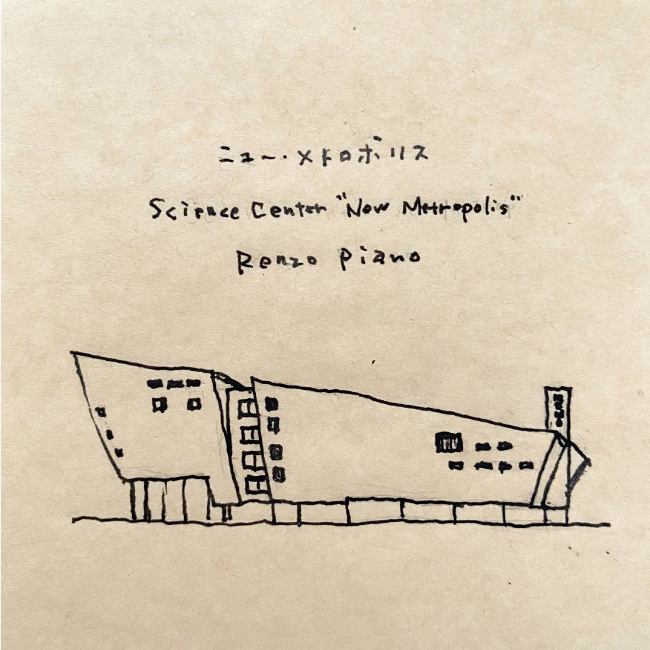 ニュー・メトロポリス
Science Center "New Metropolis"
Renzo Piano